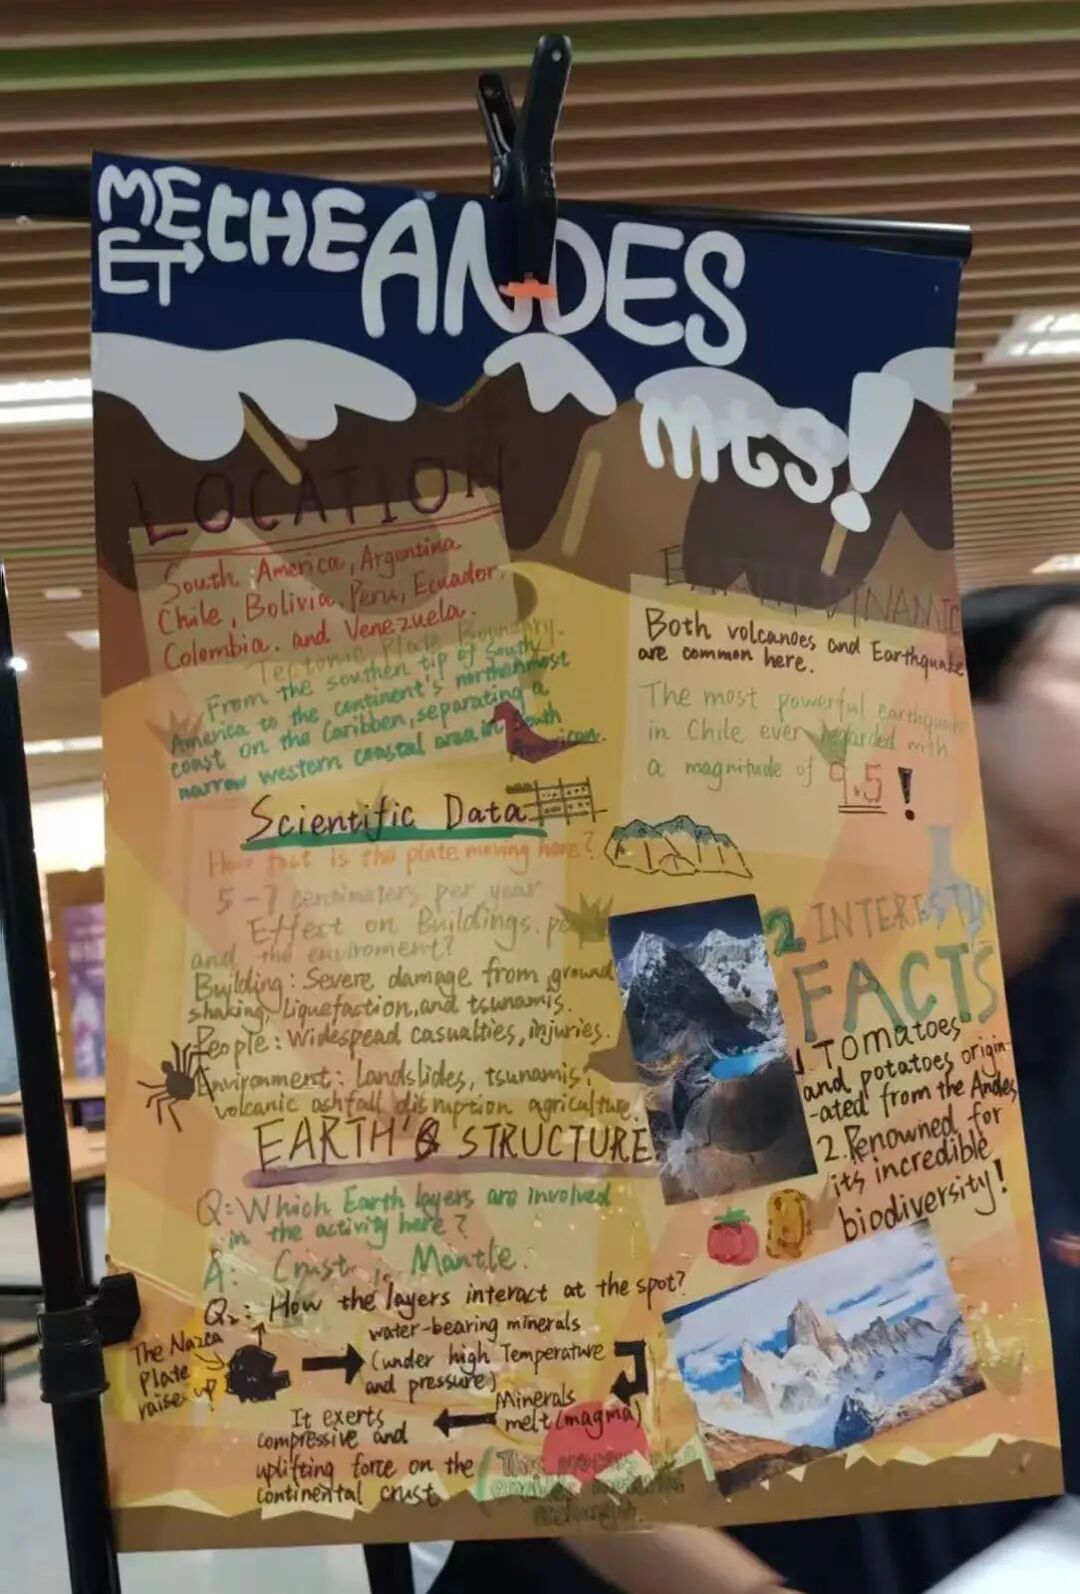 MEET the ANDES
mts!
LOCATION
South America, Argentina
Chile, Bolivia, Peru, Ecuador,
Colombia. and Venezuela.
Tectonic Plate Boundary.
From the southen tip of South
America to the continent's northenmost
coast on the Caribben, separating a
narrow western coastal area in South
American.
Scientific Data
How fast is the plate moving here?
5-7 centimeters per year
Effect on Buildings,
and the enviroment?
Building: Severe damage from ground
shaking, liquefaction, and tsunamis.
People: Widespead casualties, injuries.
Environment: Landslides, tsunamis,
volcanic ashfall disruption agriculture.
EARTH'S STRUCTURE
Q: Which Earth layers are involved
in the activity here?
A: Crust, Mantle.
Q2: How the layers interact at the spot?
The Nazca
Plate
raise up
water-bearing minerals
(under high Temperature
and pressure)
Minerals
melt (magma)
It exerts
compressive and
uplifting force on the
continental crust
EARTH DYNAMIC
Both volcanoes and Earthquake
are common here.
The most powerful earthquake
in Chile ever with
a magnitude of 9.5!
2 INTERESTIN
FACTS
1. Tomatoes
and potatoes origin-
-ated from the Andes
2. Renowned for
its incredible
biodiversity!